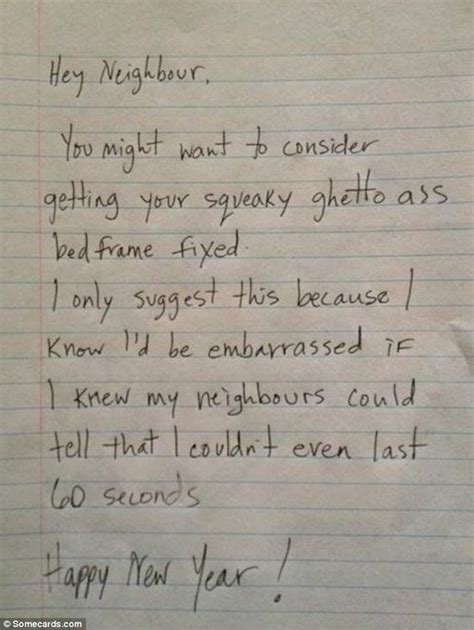 Hey Neighbour,
You might want to consider
getting your squeaky ghetto ass
bedframe fixed.
I only suggest this because I
know I'd be embarrassed if
I knew my neighbours could
tell that I couldn't even last
60 seconds
Happy New Year!
© Somecards.com